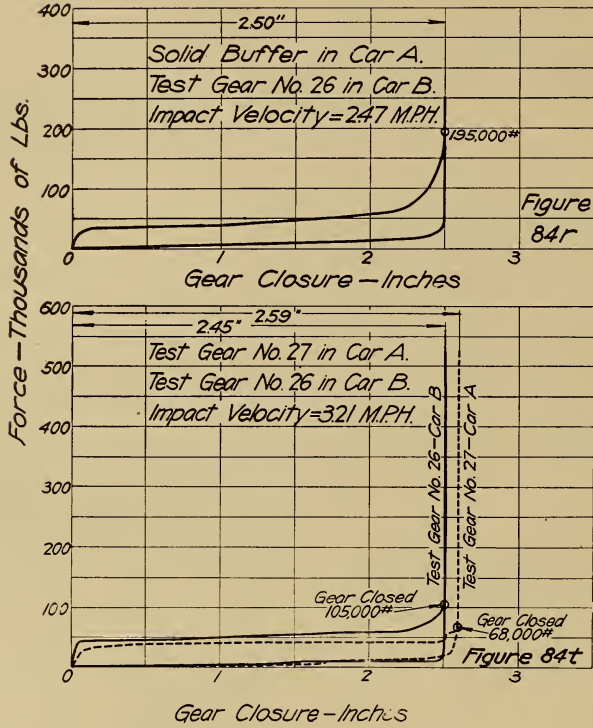 400
300
200
100
0
Force—Thousands of Lbs.
2.50"
Solid Buffer in Car A.
Test Gear No. 26 in Car B.
Impact Velocity=2.47 M.P.H.
195,000#
Figure
84r
1
2
3
Gear Closure—Inches
600
500
400
300
200
100
0
2.59"
2.45"
Test Gear No. 27 in Car A.
Test Gear No. 26 in Car B.
Impact Velocity=3.21 M.P.H.
Test Gear No. 26-Car B
Test Gear No. 27-Car A
Gear Closed
105,000#
Gear Closed
68,000#
Figure 84t
1
2
3
Gear Closure—Inches